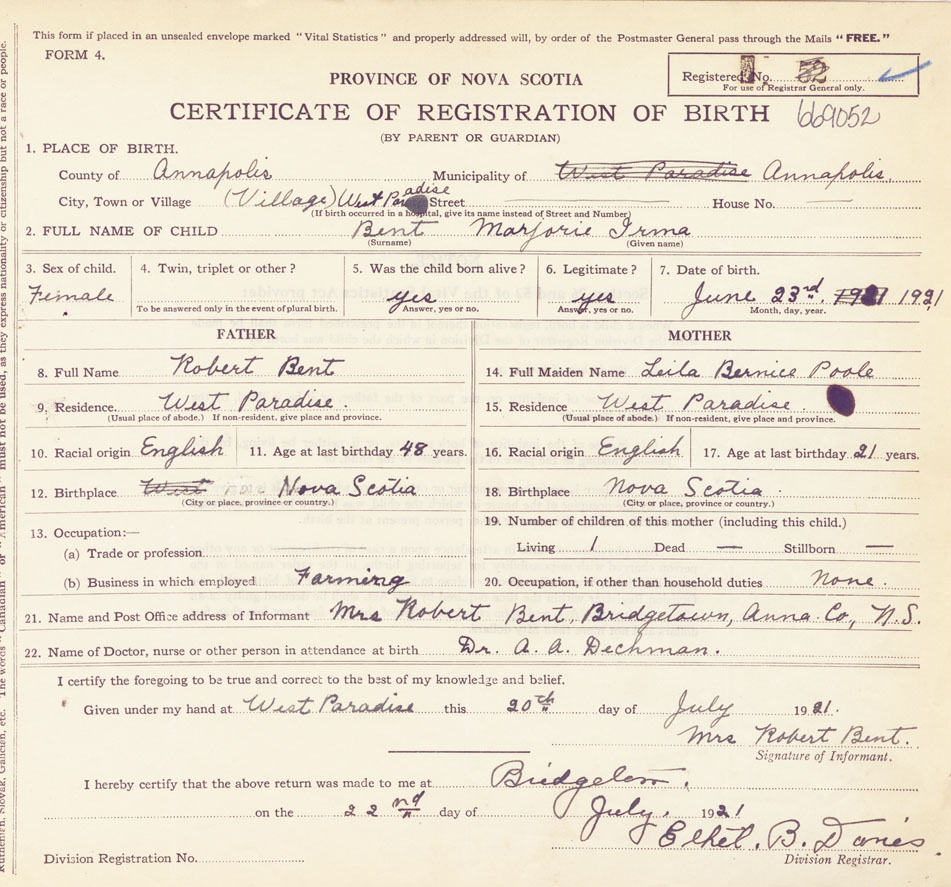 This form if placed in an unsealed envelope marked "Vital Statistics" and properly addressed will, by order of the Postmaster General pass through the Mails "FREE."
FORM 4.
PROVINCE OF NOVA SCOTIA
Registered No. 52
For use of Registrar General only.
CERTIFICATE OF REGISTRATION OF BIRTH 669052
(BY PARENT OR GUARDIAN)
1. PLACE OF BIRTH.
County of Annapolis Municipality of West Paradise Annapolis.
City, Town or Village (Village) West Paradise Street House No.
(If birth occurred in a hospital, give its name instead of Street and Number)
2. FULL NAME OF CHILD Bent Marjorie Irma
(Surname) (Given name)
3. Sex of child. 4. Twin, triplet or other? 5. Was the child born alive? 6. Legitimate? 7. Date of birth.
Female yes yes June 23rd. 1921 1921
To be answered only in the event of plural birth. Answer, yes or no. Answer, yes or no. Month, day, year.
FATHER MOTHER
8. Full Name Robert Bent 14. Full Maiden Name Leila Bernice Poole
9. Residence. West Paradise. 15. Residence West Paradise.
(Usual place of abode.) If non-resident, give place and province. (Usual place of abode.) If non-resident, give place and province.
10. Racial origin English 11. Age at last birthday 48 years. 16. Racial origin English 17. Age at last birthday 21 years.
12. Birthplace West Nova Scotia 18. Birthplace Nova Scotia
(City or place, province or country.) (City or place, province or country.)
13. Occupation:— 19. Number of children of this mother (including this child.)
(a) Trade or profession Living 1 Dead — Stillborn —
(b) Business in which employed Farming 20. Occupation, if other than household duties None.
21. Name and Post Office address of Informant Mrs Robert Bent, Bridgetown, Anna. Co., N.S.
22. Name of Doctor, nurse or other person in attendance at birth Dr. A. A. Dechman.
I certify the foregoing to be true and correct to the best of my knowledge and belief.
Given under my hand at West Paradise this 20th day of July 1921.
Mrs Robert Bent.
Signature of Informant.
I hereby certify that the above return was made to me at Bridgetown.
on the 22nd day of July, 1921
Ethel. B. Davies
Division Registrar.
Division Registration No.
Ruthenian, Slovak, Galician, etc. The words "Canadian" or "American" must not be used, as they express nationality or citizenship but not a race or people.